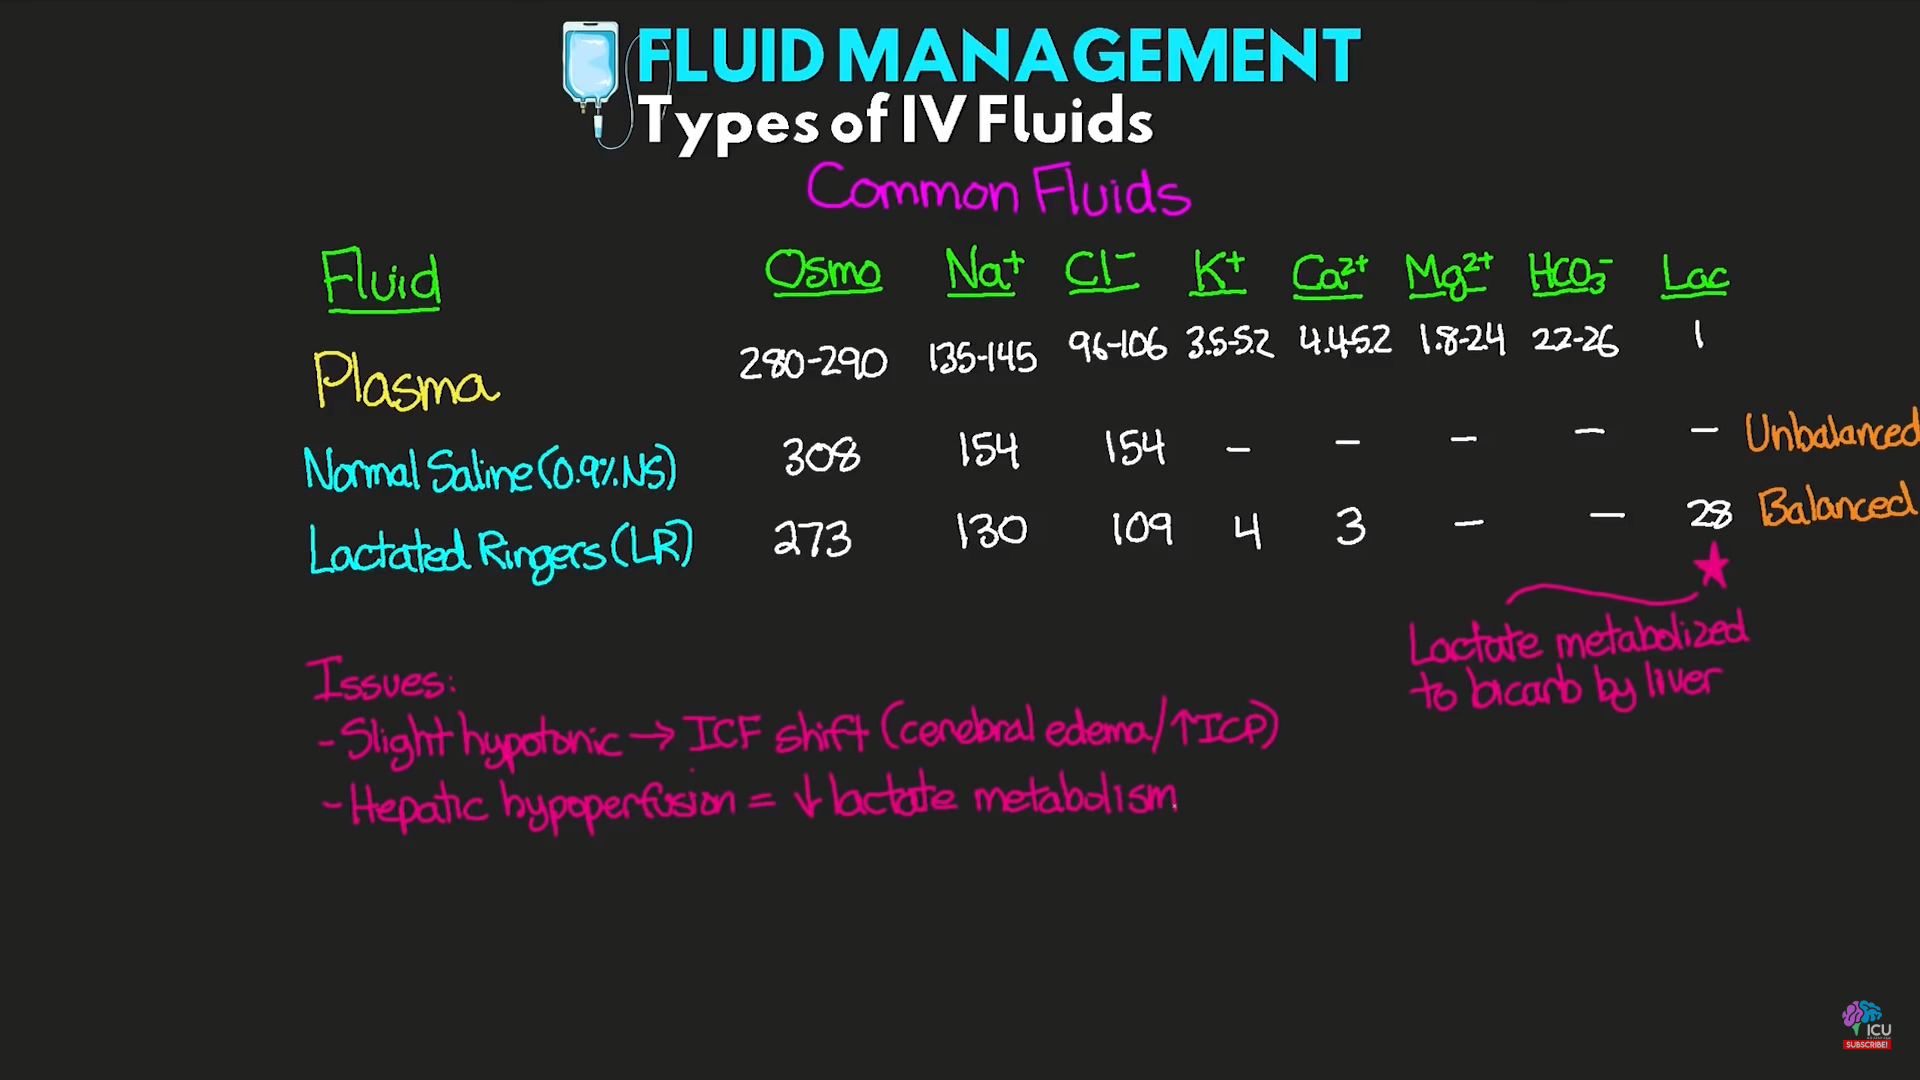 FLUID MANAGEMENT
Types of IV Fluids
Common Fluids
Fluid Osmo Na⁺ Cl⁻ K⁺ Ca²⁺ Mg²⁺ HCO₃⁻ Lac
Plasma 280-290 135-145 96-106 3.5-5.2 4.4-5.2 1.8-2.4 22-26 1
Normal Saline (0.9% NS) 308 154 154 - - - - - Unbalanced
Lactated Ringers (LR) 273 130 109 4 3 - - 28 Balanced
Lactate metabolized
to bicarb by liver
Issues:
- Slight hypotonic → ICF shift (cerebral edema/↑ICP)
- Hepatic hypoperfusion = ↓ lactate metabolism
ICU
SUBSCRIBE!